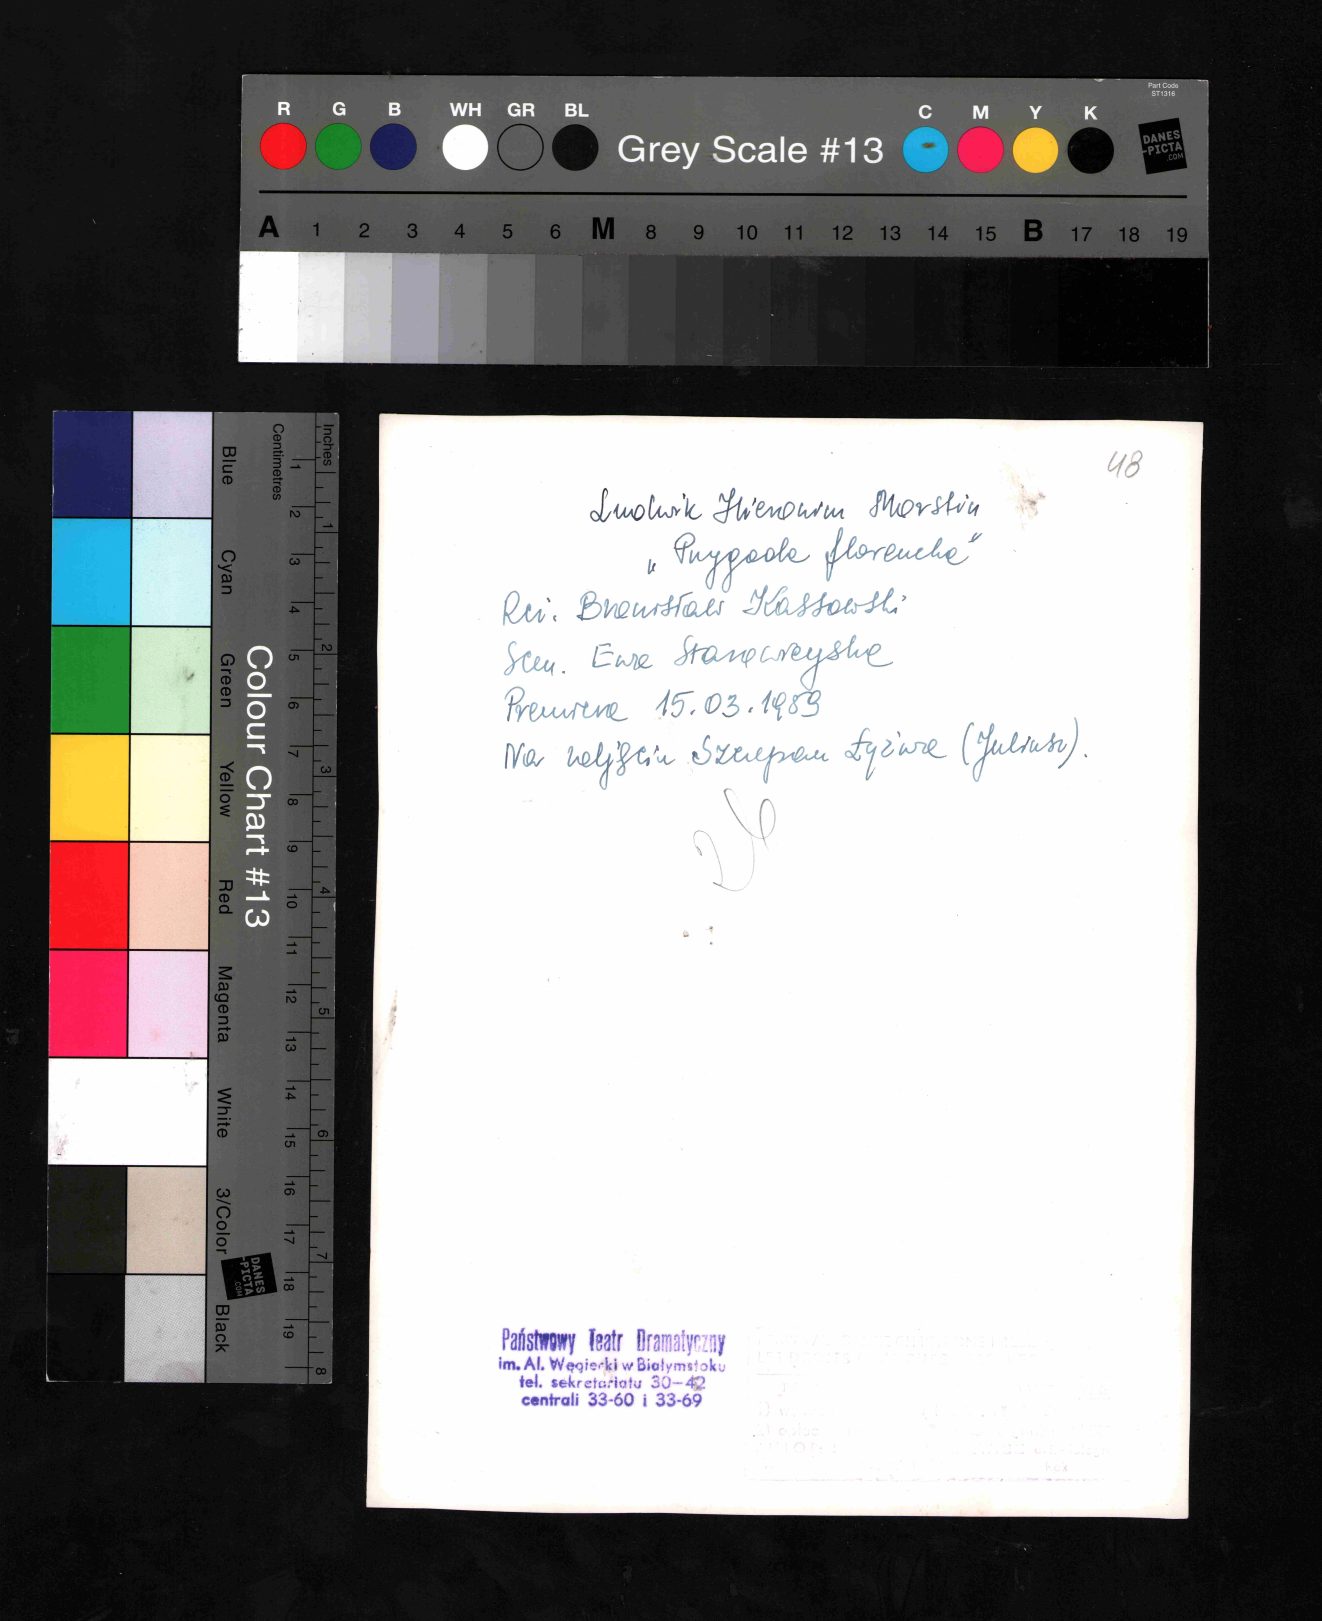 Part Code
ST1316
R G B WH GR BL Grey Scale #13 C M Y K
DANES
-PICTA
.COM
A 1 2 3 4 5 6 M 8 9 10 11 12 13 14 15 B 17 18 19
Inches
Centimetres
1 2 3 4 5 6 7 8 9 10 11 12 13 14 15 16 17 18 19
1 2 3 4 5 6 7 8
Colour Chart #13
Blue
Cyan
Green
Yellow
Red
Magenta
White
3/Color
Black
DANES
-PICTA
.COM
48
Ludwik Hieronim Morstin
„Przygoda florencka"
Reż. Bronisław Kassowski
Scen. Ewa Starowieyska
Premiera 15.03.1959
Na zdjęciu Szczepan Łyżwa (Juliusz).
Państwowy Teatr Dramatyczny
im. Al. Węgierki w Białymstoku
tel. sekretariatu 30-42
centrali 33-60 i 33-69